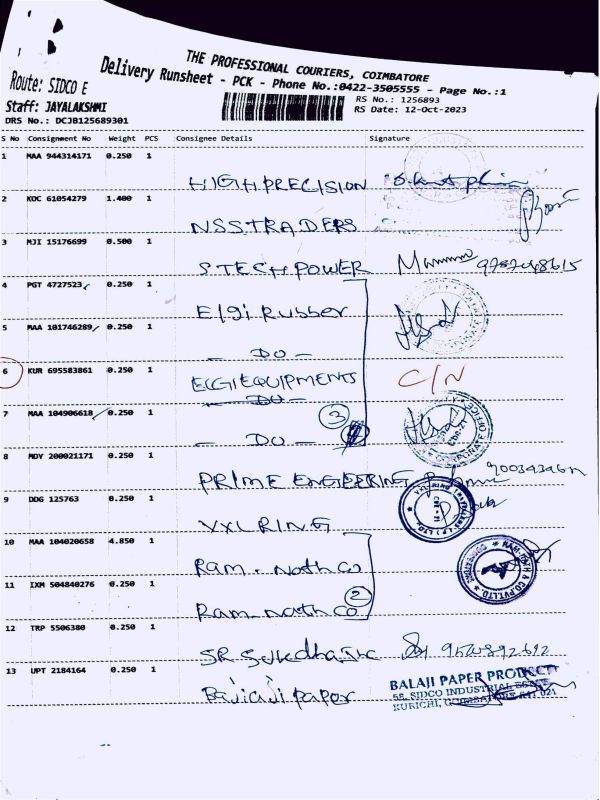 THE PROFESSIONAL COURIERS, COIMBATORE
Delivery Runsheet - PCK - Phone No.:0422-3505555 - Page No.:1
Route: SIDCO E
RS No.: 1256893
Staff: JAYALAKSHMI
RS Date: 12-Oct-2023
DRS No.: DCJB125689301
S No Consignment No Weight PCS Consignee Details Signature
1 MAA 944314171 0.250 1
HIGH PRECISION
2 KOC 61054279 1.400 1
NSS TRADERS
3 MJI 15176699 0.500 1
STECH POWER
4 PGT 4727523 0.250 1
Elgi Rubber
5 MAA 101746289 0.250 1
- DO -
6 KUR 695583861 0.250 1
ELGI EQUIPMENTS C/N
- DO -
7 MAA 104906618 0.250 1
3
- DO -
8 MDY 200021171 0.250 1
PRIME ENGINEERING
9 DDG 125763 0.250 1
VXL RING
10 MAA 104020658 4.850 1
Ram. Nath co
11 IXM 504840276 0.250 1
2
Ram nath co
12 TRP 5506380 0.250 1
SR
13 UPT 2184164 0.250 1
paper
BALAJI PAPER PRODUCT
58, SIDCO INDUSTRIAL
KURICHI, 641 021